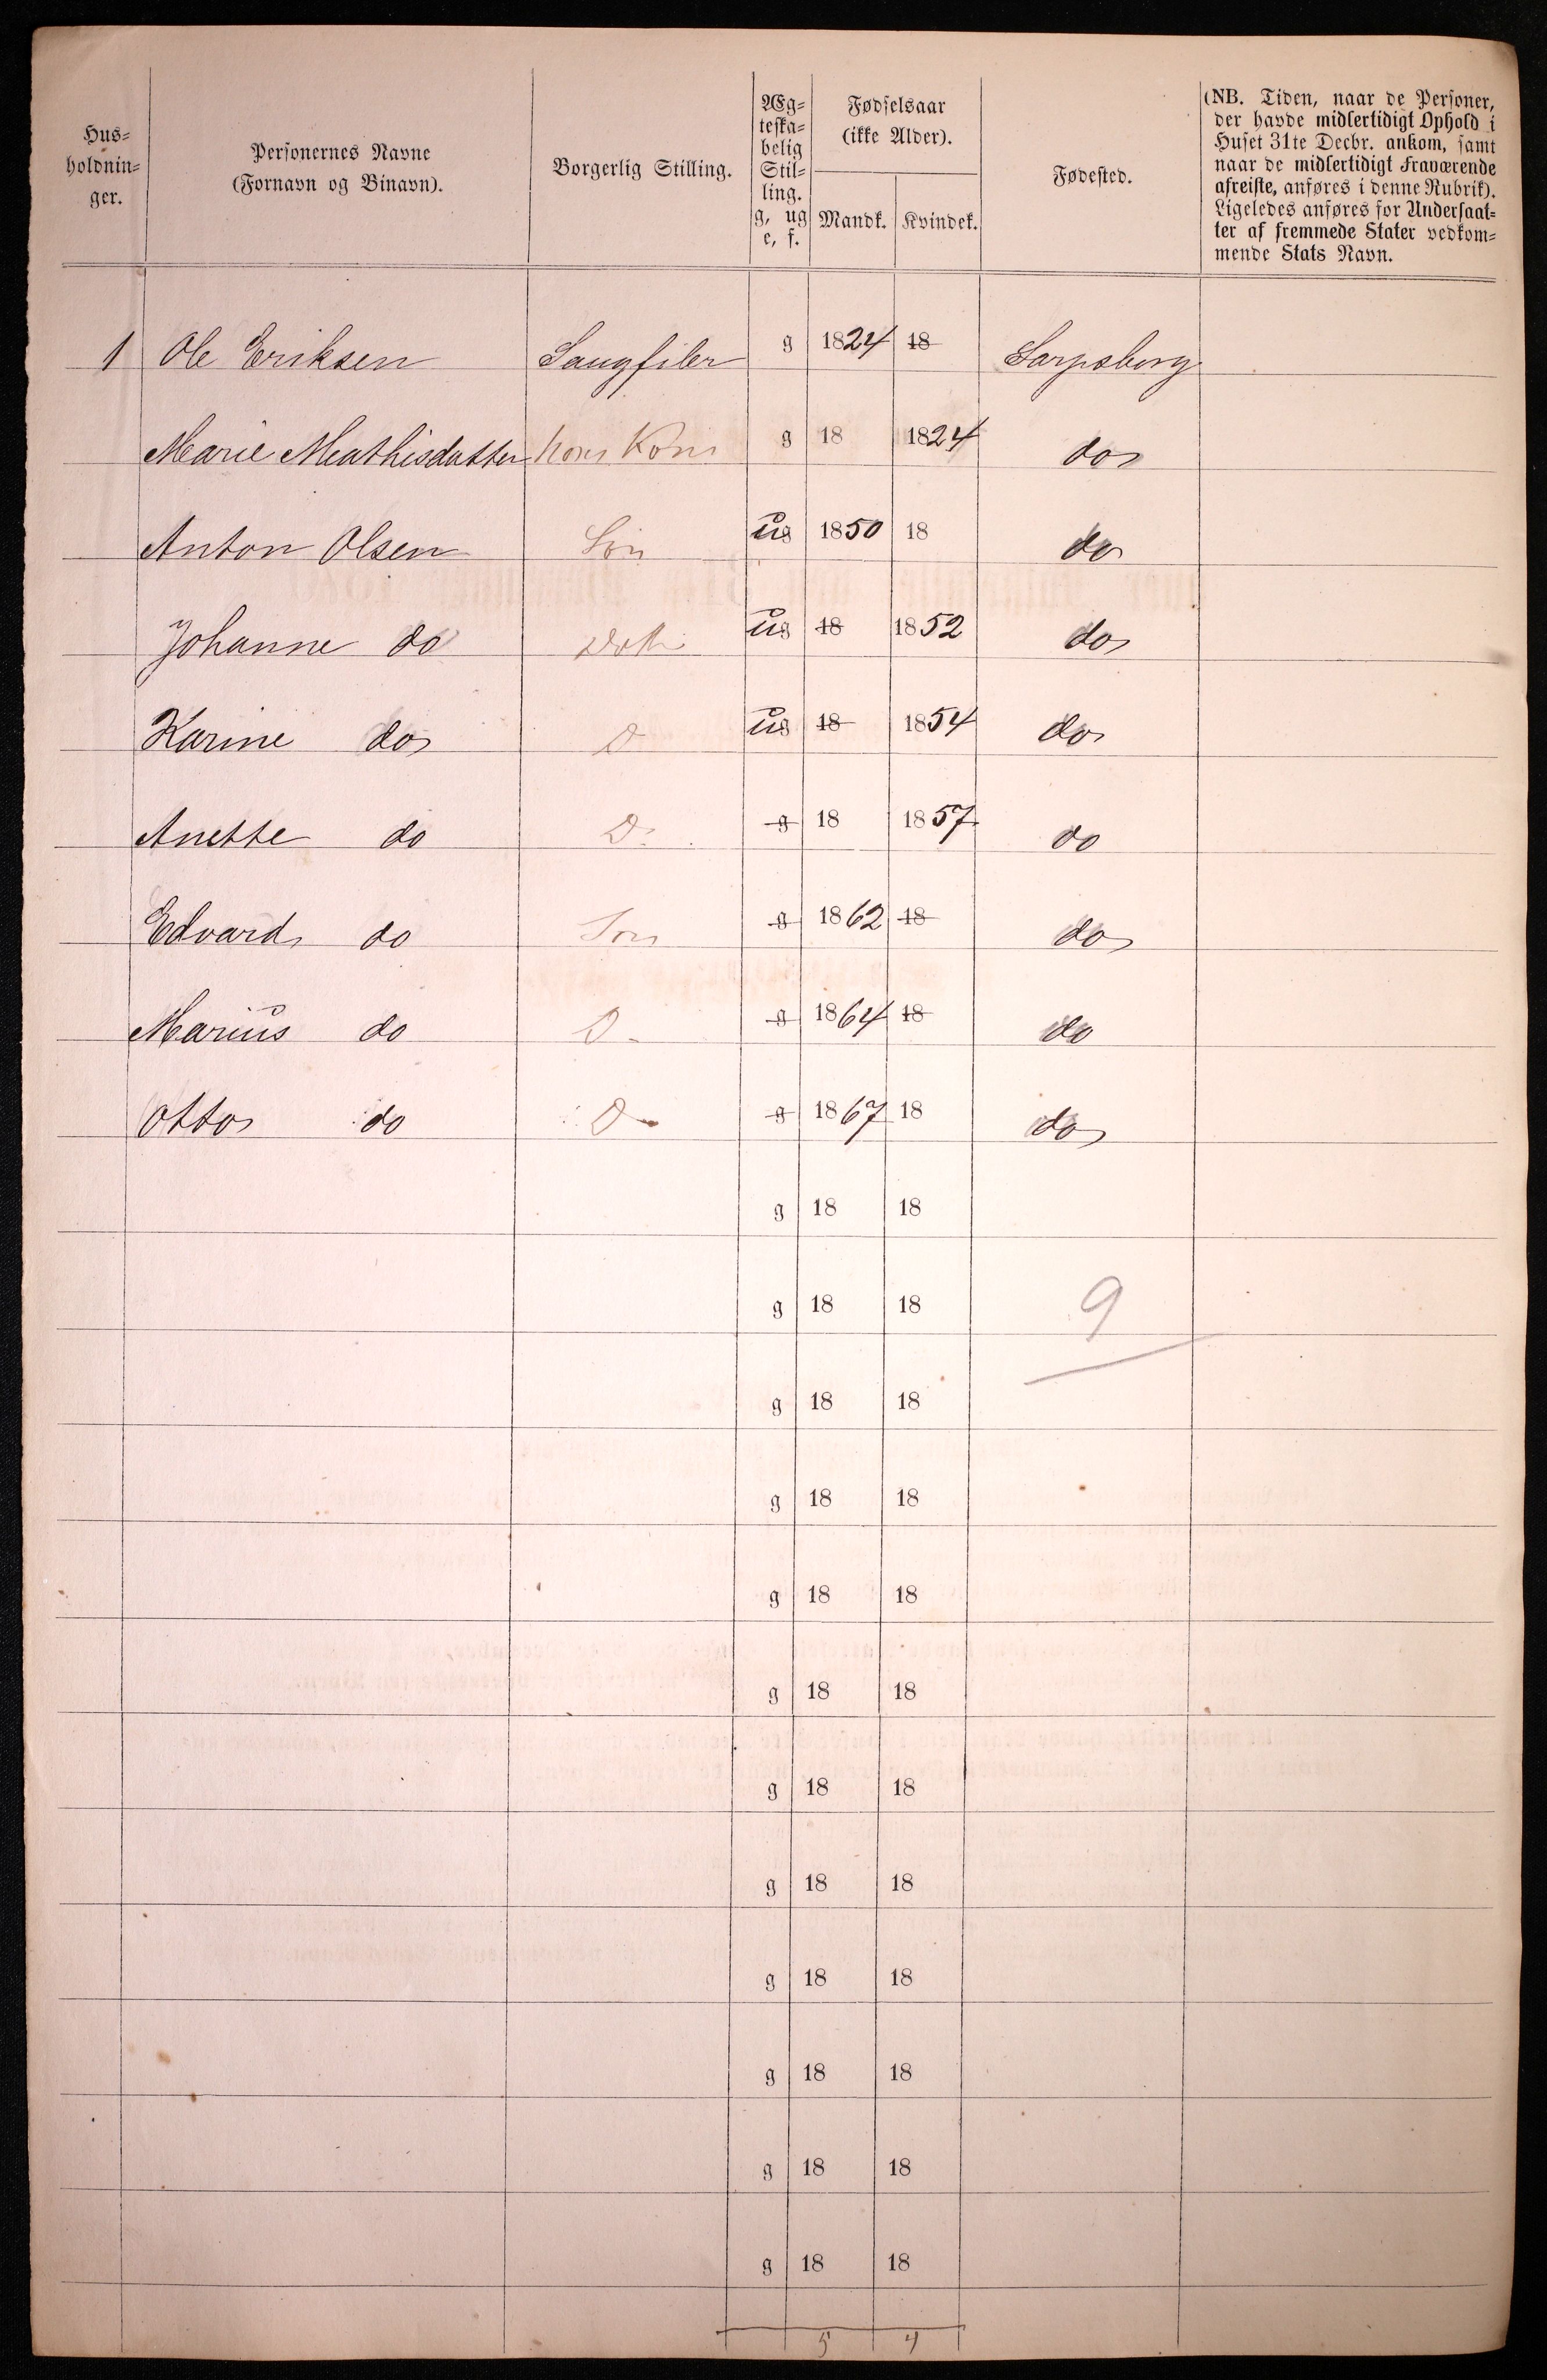 Hus-
holdnin-
ger.
Personernes Navne
(Fornavn og Binavn).
Borgerlig Stilling.
Æg-
teska-
belig
Stil-
ling.
g, ug
e, f.
Fødselsaar
(ikke Alder).
Mandk. Kvindek.
Fødested.
(NB. Tiden, naar de Personer,
der havde midlertidigt Ophold i
Huset 31te Decbr. ankom, samt
naar de midlertidigt Fraværende
afreiste, anføres i denne Rubrik).
Ligeledes anføres for Undersaat-
ter af fremmede Stater vedkom-
mende Stats Navn.
1 Ole Eriksen Saugfiler g 1824 18 Sarpsborg
Marie Mathisdatter hans Kone g 18 1824 do
Anton Olsen Søn ug 1850 18 do
Johanne do Datt. ug 18 1852 do
Karine do D ug 18 1854 do
Anette do D. g 18 1857 do
Edvard do Søn g 1862 18 do
Marius do D. g 1864 18 do
Otto do D g 1867 18 do
g 18 18
g 18 18 9
g 18 18
g 18 18
g 18 18
g 18 18
g 18 18
g 18 18
g 18 18
g 18 18
g 18 18
g 18 18
5 4